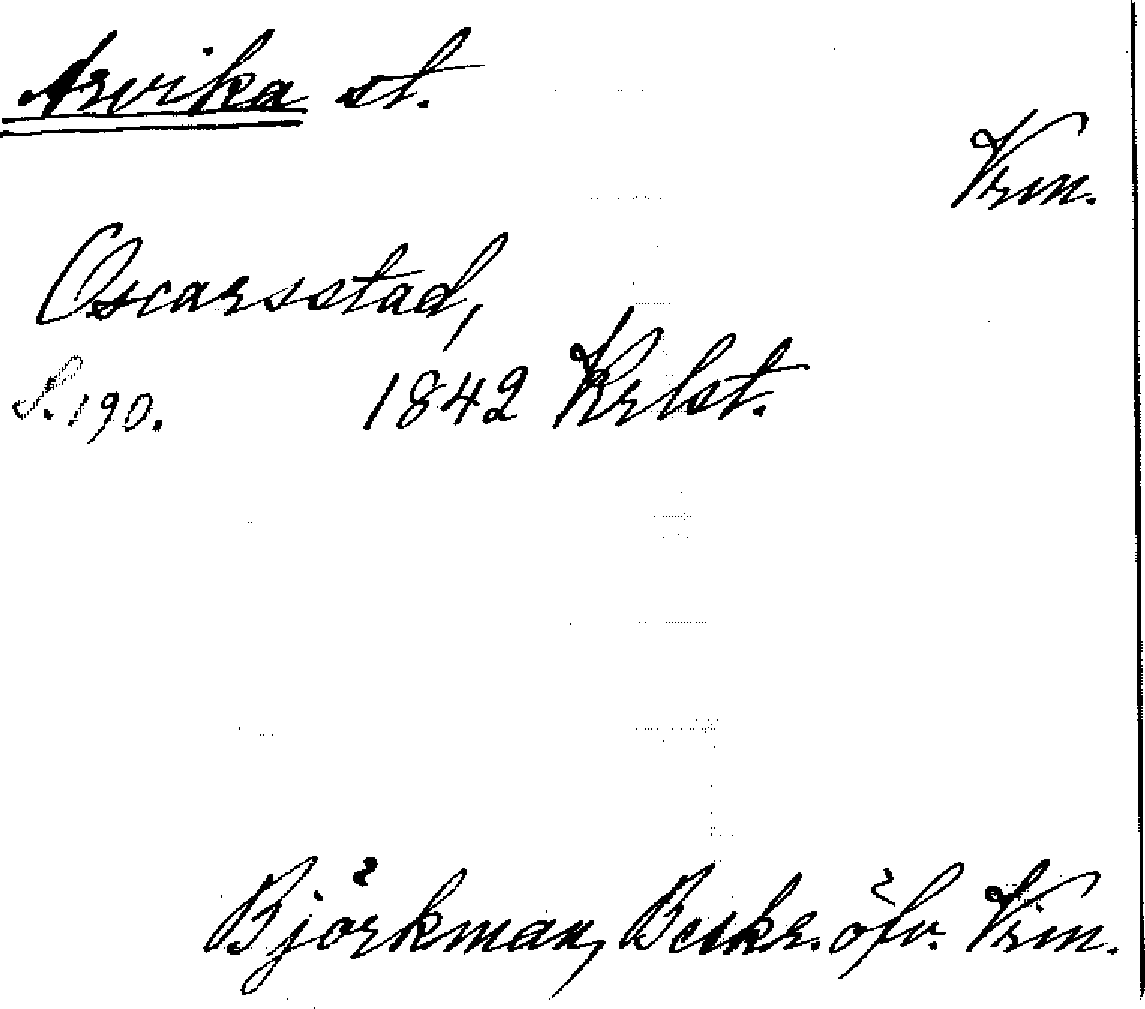 Arvika st.
Vrm.
Oscarsstad,
S. 190. 1842 Krlst.
Björkman, Beskr. öfv. Vrm.